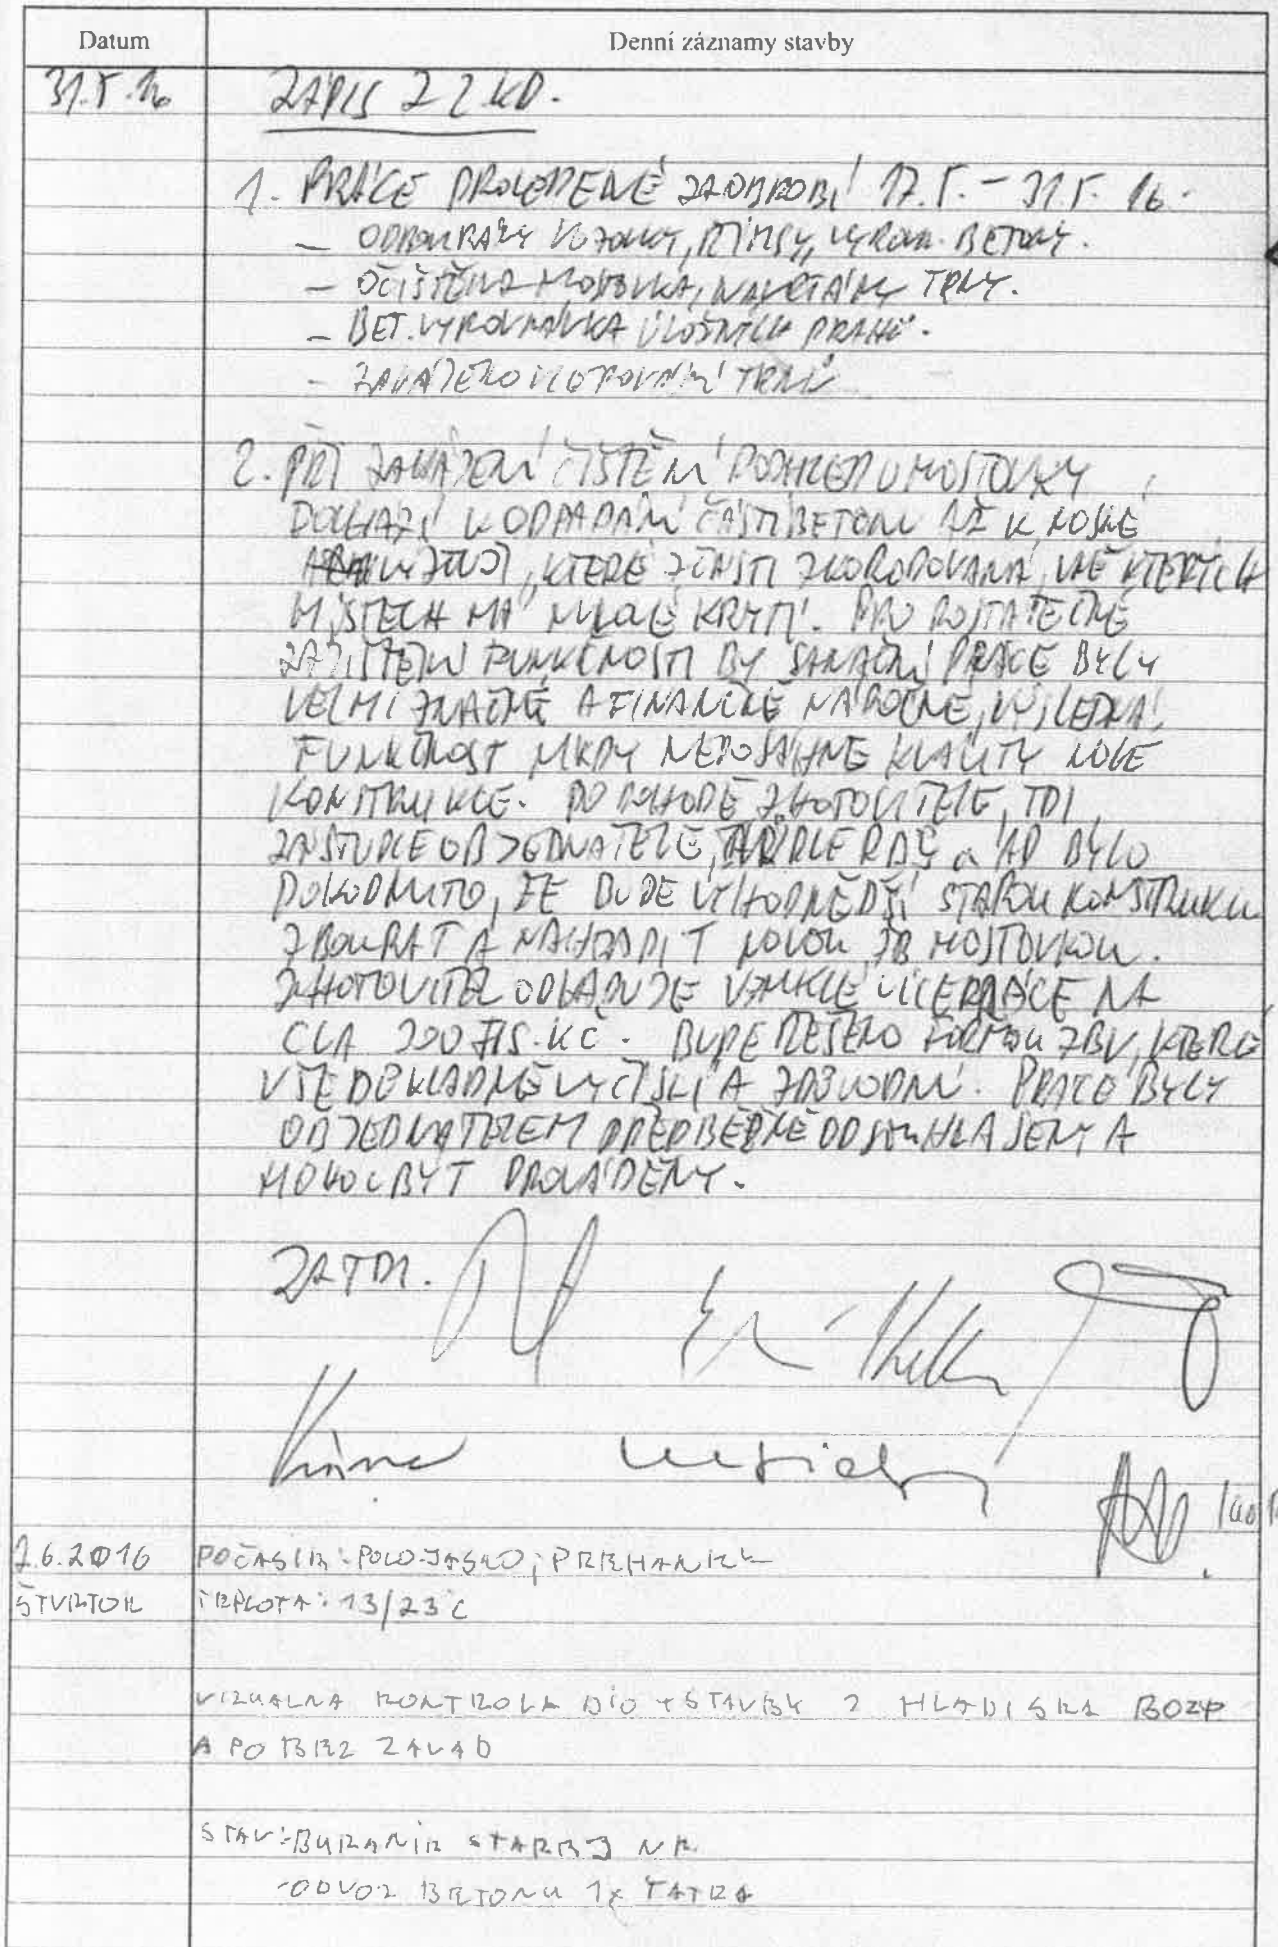 Datum
Denní záznamy stavby
31.5.16
ZÁPIS Z 2.KD.
1. PRÁCE PROVEDENÉ ZA OBDOBÍ 17.5. - 31.5. 16.
- ODBOURÁNY VOZOVKY, ŘÍMSY, VYROVN. BETONY.
- OČIŠTĚNA MOSTOVKA, NAVRTÁNY TRNY.
- BET. VYROVNÁVKA ÚLOŽNÝCH PRAHŮ.
- ZAHÁJENO VLEPOVÁNÍ TRNŮ
2. PŘI ZAHÁJENÍ ČIŠTĚNÍ PODHLEDU MOSTOVKY
DOCHÁZÍ K ODPADÁNÍ ČÁSTI BETONU AŽ K NOSNÉ
VÝZTUŽI, KTERÉ ZČÁSTI ZKORODOVANÁ, V NĚKTERÝCH
MÍSTECH MÁ NULOVÉ KRYTÍ. PRO DOSTATEČNÉ
ZAJIŠTĚNÍ FUNKČNOSTI BY SANAČNÍ PRÁCE BYLY
VELMI ZNAČNÉ A FINANČNĚ NÁROČNÉ, VÝSLEDNÁ
FUNKČNOST NIKDY NEDOSÁHNE KVALITY NOVÉ
KONSTRUKCE. PO DOHODĚ ZHOTOVITELE, TDI,
ZÁSTUPCE OBJEDNATELE, RDS a AD BYLO
DOHODNUTO, ŽE BUDE VÝHODNĚJŠÍ STAROU KONSTRUKCI
ZBOURAT A NAHRADIT NOVOU ŽB MOSTOVKOU.
ZHOTOVITEL ODHADUJE VZNIKLÉ VÍCEPRÁCE NA
CCA 300 TIS. KČ. BUDE ŘEŠENO FORMOU ZBV, KTERÉ
VŠE DOKLADNĚ VYČÍSLÍ A ZDŮVODNÍ. PRÁCE BYLY
OBJEDNATELEM PŘEDBĚŽNĚ ODSOUHLASENY A
MOHOU BÝT PROVÁDĚNY.
ZA TDI.
2.6.2016 POČASIE: POLOJASNO, PREHANKY
ŠTVRTOK TEPLOTA: 13/23°C
VIZUALNA KONTROLA DIO + STAVBY Z HLADISKA BOZP
A PO BEZ ZAVAD
STAV: BURANIE STAREJ NK
- ODVOZ BETONU 1x TATRA